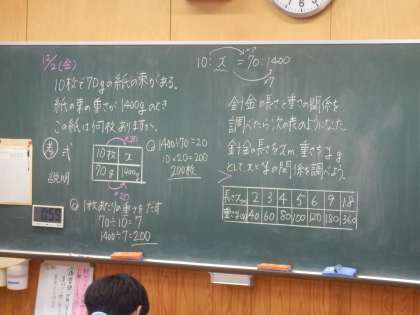 12/2(金)
10:x=70:1400
10枚で70gの紙の束がある。
紙の束の重さが1400gのとき
この紙は何枚ありますか。
考
式
説明
10枚 x
70g 1400g
1400÷70=20
10×20=200
200枚
1枚あたりの重さをだす
70÷10=7
1400÷7=200
針金の長さと重さの関係を
調べたら次の表のようになった。
針金の長さをxm 重さをyg
としてxとyの関係を調べよう。
長さx(m) 2 3 4 5 6 9 18
重さy(g) 40 60 80 100 120 180 360